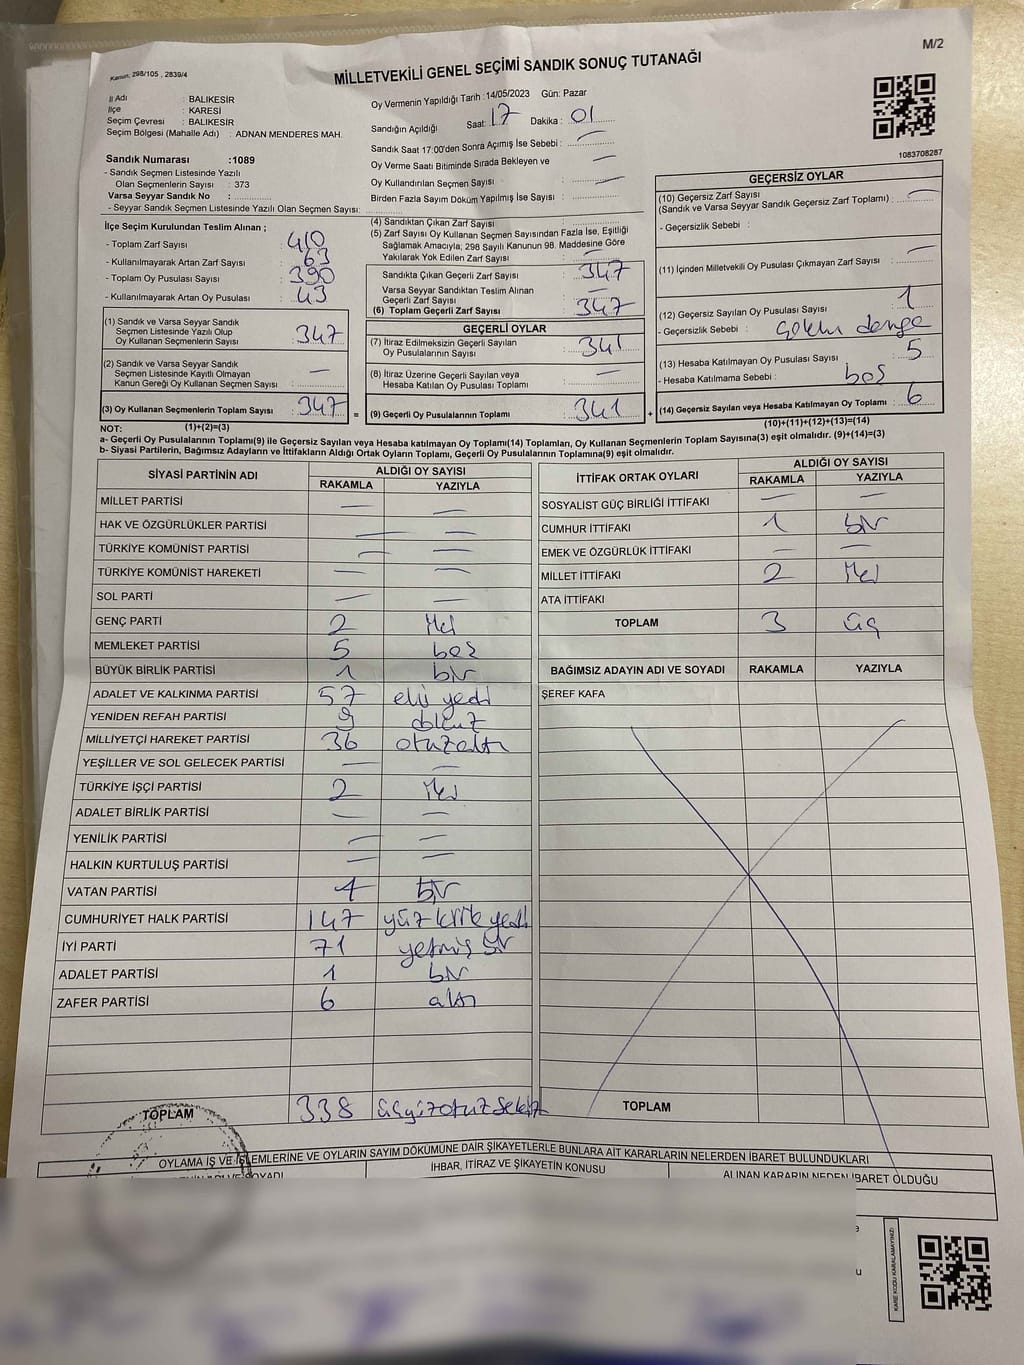 M/2
Kanun, 298/105 , 2839/4
MİLLETVEKİLİ GENEL SEÇİMİ SANDIK SONUÇ TUTANAĞI
İl Adı : BALIKESİR
İlçe : KARESİ
Seçim Çevresi : BALIKESİR
Seçim Bölgesi (Mahalle Adı) : ADNAN MENDERES MAH.
Sandık Numarası :1089
- Sandık Seçmen Listesinde Yazılı
Olan Seçmenlerin Sayısı : 373
Varsa Seyyar Sandık No :
- Seyyar Sandık Seçmen Listesinde Yazılı Olan Seçmen Sayısı:
Oy Vermenin Yapıldığı Tarih :14/05/2023 Gün: Pazar
Sandığın Açıldığı Saat: 17 Dakika : 01
Sandık Saat 17:00'den Sonra Açımış İse Sebebi : —
Oy Verme Saati Bitiminde Sırada Bekleyen ve —
Oy Kullandırılan Seçmen Sayısı : —
Birden Fazla Sayım Döküm Yapılmış İse Sayısı :
1083708287
İlçe Seçim Kurulundan Teslim Alınan ;
- Toplam Zarf Sayısı : 410
- Kullanılmayarak Artan Zarf Sayısı : 63
- Toplam Oy Pusulası Sayısı : 390
- Kullanılmayarak Artan Oy Pusulası : 43
(1) Sandık ve Varsa Seyyar Sandık
Seçmen Listesinde Yazılı Olup
Oy Kullanan Seçmenlerin Sayısı : 347
(2) Sandık ve Varsa Seyyar Sandık
Seçmen Listesinde Kayıtlı Olmayan
Kanun Gereği Oy Kullanan Seçmen Sayısı : —
(3) Oy Kullanan Seçmenlerin Toplam Sayısı : 347 =
(4) Sandıktan Çıkan Zarf Sayısı :
(5) Zarf Sayısı Oy Kullanan Seçmen Sayısından Fazla İse, Eşitliği
Sağlamak Amacıyla; 298 Sayılı Kanunun 98. Maddesine Göre
Yakılarak Yok Edilen Zarf Sayısı :
Sandıkta Çıkan Geçerli Zarf Sayısı : 347
Varsa Seyyar Sandıktan Teslim Alınan
Geçerli Zarf Sayısı : —
(6) Toplam Geçerli Zarf Sayısı : 347
GEÇERLİ OYLAR
(7) İtiraz Edilmeksizin Geçerli Sayılan
Oy Pusulalarının Sayısı : 341
(8) İtiraz Üzerine Geçerli Sayılan veya
Hesaba Katılan Oy Pusulası Toplamı : —
(9) Geçerli Oy Pusulalarının Toplamı : 341 +
GEÇERSİZ OYLAR
(10) Geçersiz Zarf Sayısı
(Sandık ve Varsa Seyyar Sandık Geçersiz Zarf Toplamı) : —
- Geçersizlik Sebebi :
(11) İçinden Milletvekili Oy Pusulası Çıkmayan Zarf Sayısı : —
(12) Geçersiz Sayılan Oy Pusulası Sayısı : 1
- Geçersizlik Sebebi :
(13) Hesaba Katılmayan Oy Pusulası Sayısı : 5
- Hesaba Katılmama Sebebi : boş
(14) Geçersiz Sayılan veya Hesaba Katılmayan Oy Toplamı : 6
NOT: (1)+(2)=(3) (10)+(11)+(12)+(13)=(14)
a- Geçerli Oy Pusulalarının Toplamı(9) ile Geçersiz Sayılan veya Hesaba katılmayan Oy Toplamı(14) Toplamları, Oy Kullanan Seçmenlerin Toplam Sayısına(3) eşit olmalıdır. (9)+(14)=(3)
b- Siyasi Partilerin, Bağımsız Adayların ve İttifakların Aldığı Ortak Oyların Toplamı, Geçerli Oy Pusulalarının Toplamına(9) eşit olmalıdır.
SİYASİ PARTİNİN ADI ALDIĞI OY SAYISI
RAKAMLA YAZIYLA
MİLLET PARTİSİ — —
HAK VE ÖZGÜRLÜKLER PARTİSİ — —
TÜRKİYE KOMÜNİST PARTİSİ — —
TÜRKİYE KOMÜNİST HAREKETİ — —
SOL PARTİ — —
GENÇ PARTİ 2 iki
MEMLEKET PARTİSİ 5 beş
BÜYÜK BİRLİK PARTİSİ 1 bir
ADALET VE KALKINMA PARTİSİ 57 elli yedi
YENİDEN REFAH PARTİSİ 9 dokuz
MİLLİYETÇİ HAREKET PARTİSİ 36 otuzaltı
YEŞİLLER VE SOL GELECEK PARTİSİ — —
TÜRKİYE İŞÇİ PARTİSİ 2 iki
ADALET BİRLİK PARTİSİ — —
YENİLİK PARTİSİ — —
HALKIN KURTULUŞ PARTİSİ — —
VATAN PARTİSİ 1 bir
CUMHURİYET HALK PARTİSİ 147 yüz kırk yedi
İYİ PARTİ 71 yetmiş bir
ADALET PARTİSİ 1 bir
ZAFER PARTİSİ 6 altı
TOPLAM 338 üçyüzotuz sekiz
İTTİFAK ORTAK OYLARI ALDIĞI OY SAYISI
RAKAMLA YAZIYLA
SOSYALİST GÜÇ BİRLİĞİ İTTİFAKI — —
CUMHUR İTTİFAKI 1 bir
EMEK VE ÖZGÜRLÜK İTTİFAKI — —
MİLLET İTTİFAKI 2 iki
ATA İTTİFAKI
TOPLAM 3 üç
BAĞIMSIZ ADAYIN ADI VE SOYADI RAKAMLA YAZIYLA
ŞEREF KAFA
TOPLAM
OYLAMA İŞ VE İŞLEMLERİNE VE OYLARIN SAYIM DÖKÜMÜNE DAİR ŞİKAYETLERLE BUNLARA AİT KARARLARIN NELERDEN İBARET BULUNDUKLARI
İHBAR, İTİRAZ VE ŞİKAYETİN KONUSU
ALINAN KARARIN NEDEN İBARET OLDUĞU
KARE KODU KARALAMAYINIZ!